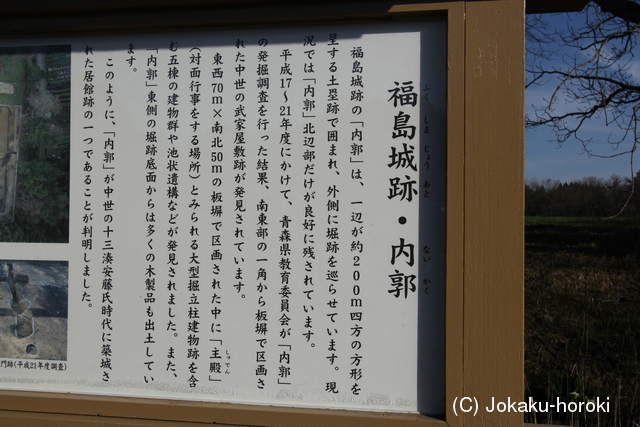 福島城跡・内郭
ふくしまじょうあと ないかく
福島城跡の「内郭」は、一辺が約200m四方の方形を
呈する土塁跡で囲まれ、外側に堀跡を巡らせています。現
況では「内郭」北辺部だけが良好に残されています。
平成17～21年度にかけて、青森県教育委員会が「内郭」
の発掘調査を行った結果、南東部の一角から板塀で区画さ
れた中世の武家屋敷跡が発見されています。
東西70m×南北50mの板塀で区画された中に「主殿」
しゅでん
(対面行事をする場所)とみられる大型掘立柱建物跡を含
む五棟の建物群や池状遺構などが発見されました。また、
「内郭」東側の堀跡底面からは多くの木製品も出土してい
ます。
このように、「内郭」が中世の十三湊安藤氏時代に築城さ
れた居館跡の一つであることが判明しました。
門跡(平成21年度調査)
(C) Jokaku-horoki